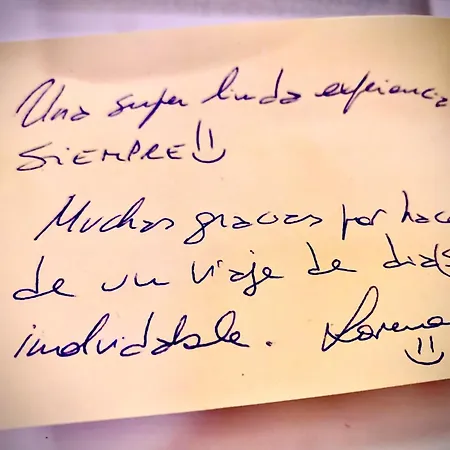 Una super linda experiencia
SIEMPRE
Muchas gracias por hace
de un viaje de dia(s
inolvidable. Lorena